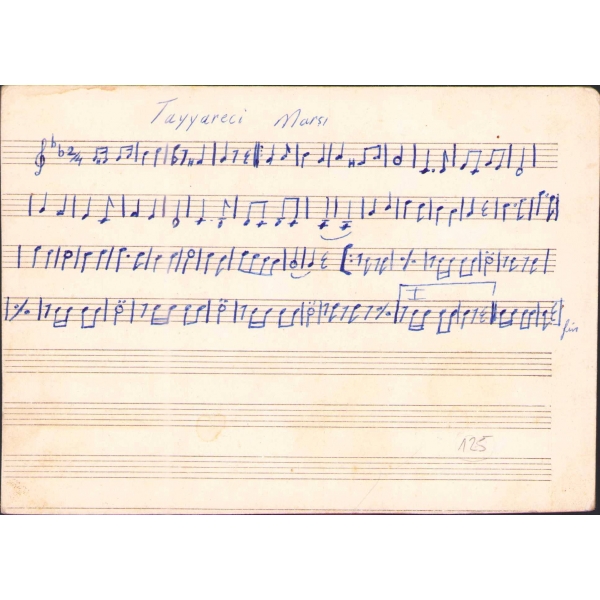 Tayyareci Marşı
2/4
I
fin
125